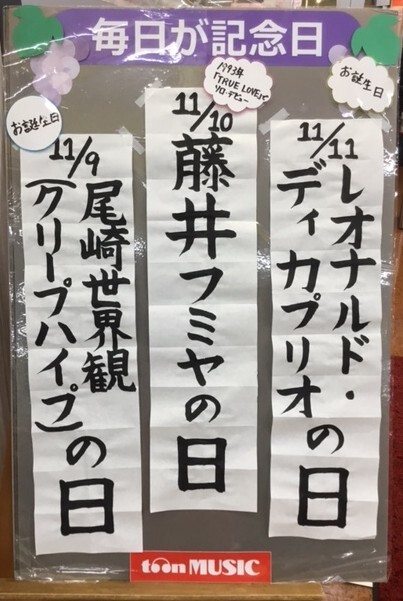 毎日が記念日
お誕生日
11/11
レオナルド・
ディカプリオの日
1993年
「TRUE LOVE」で
ソロ・デビュー
11/10
藤井フミヤの日
お誕生日
11/9
尾崎世界観
(クリープハイプ)の日
toon MUSIC